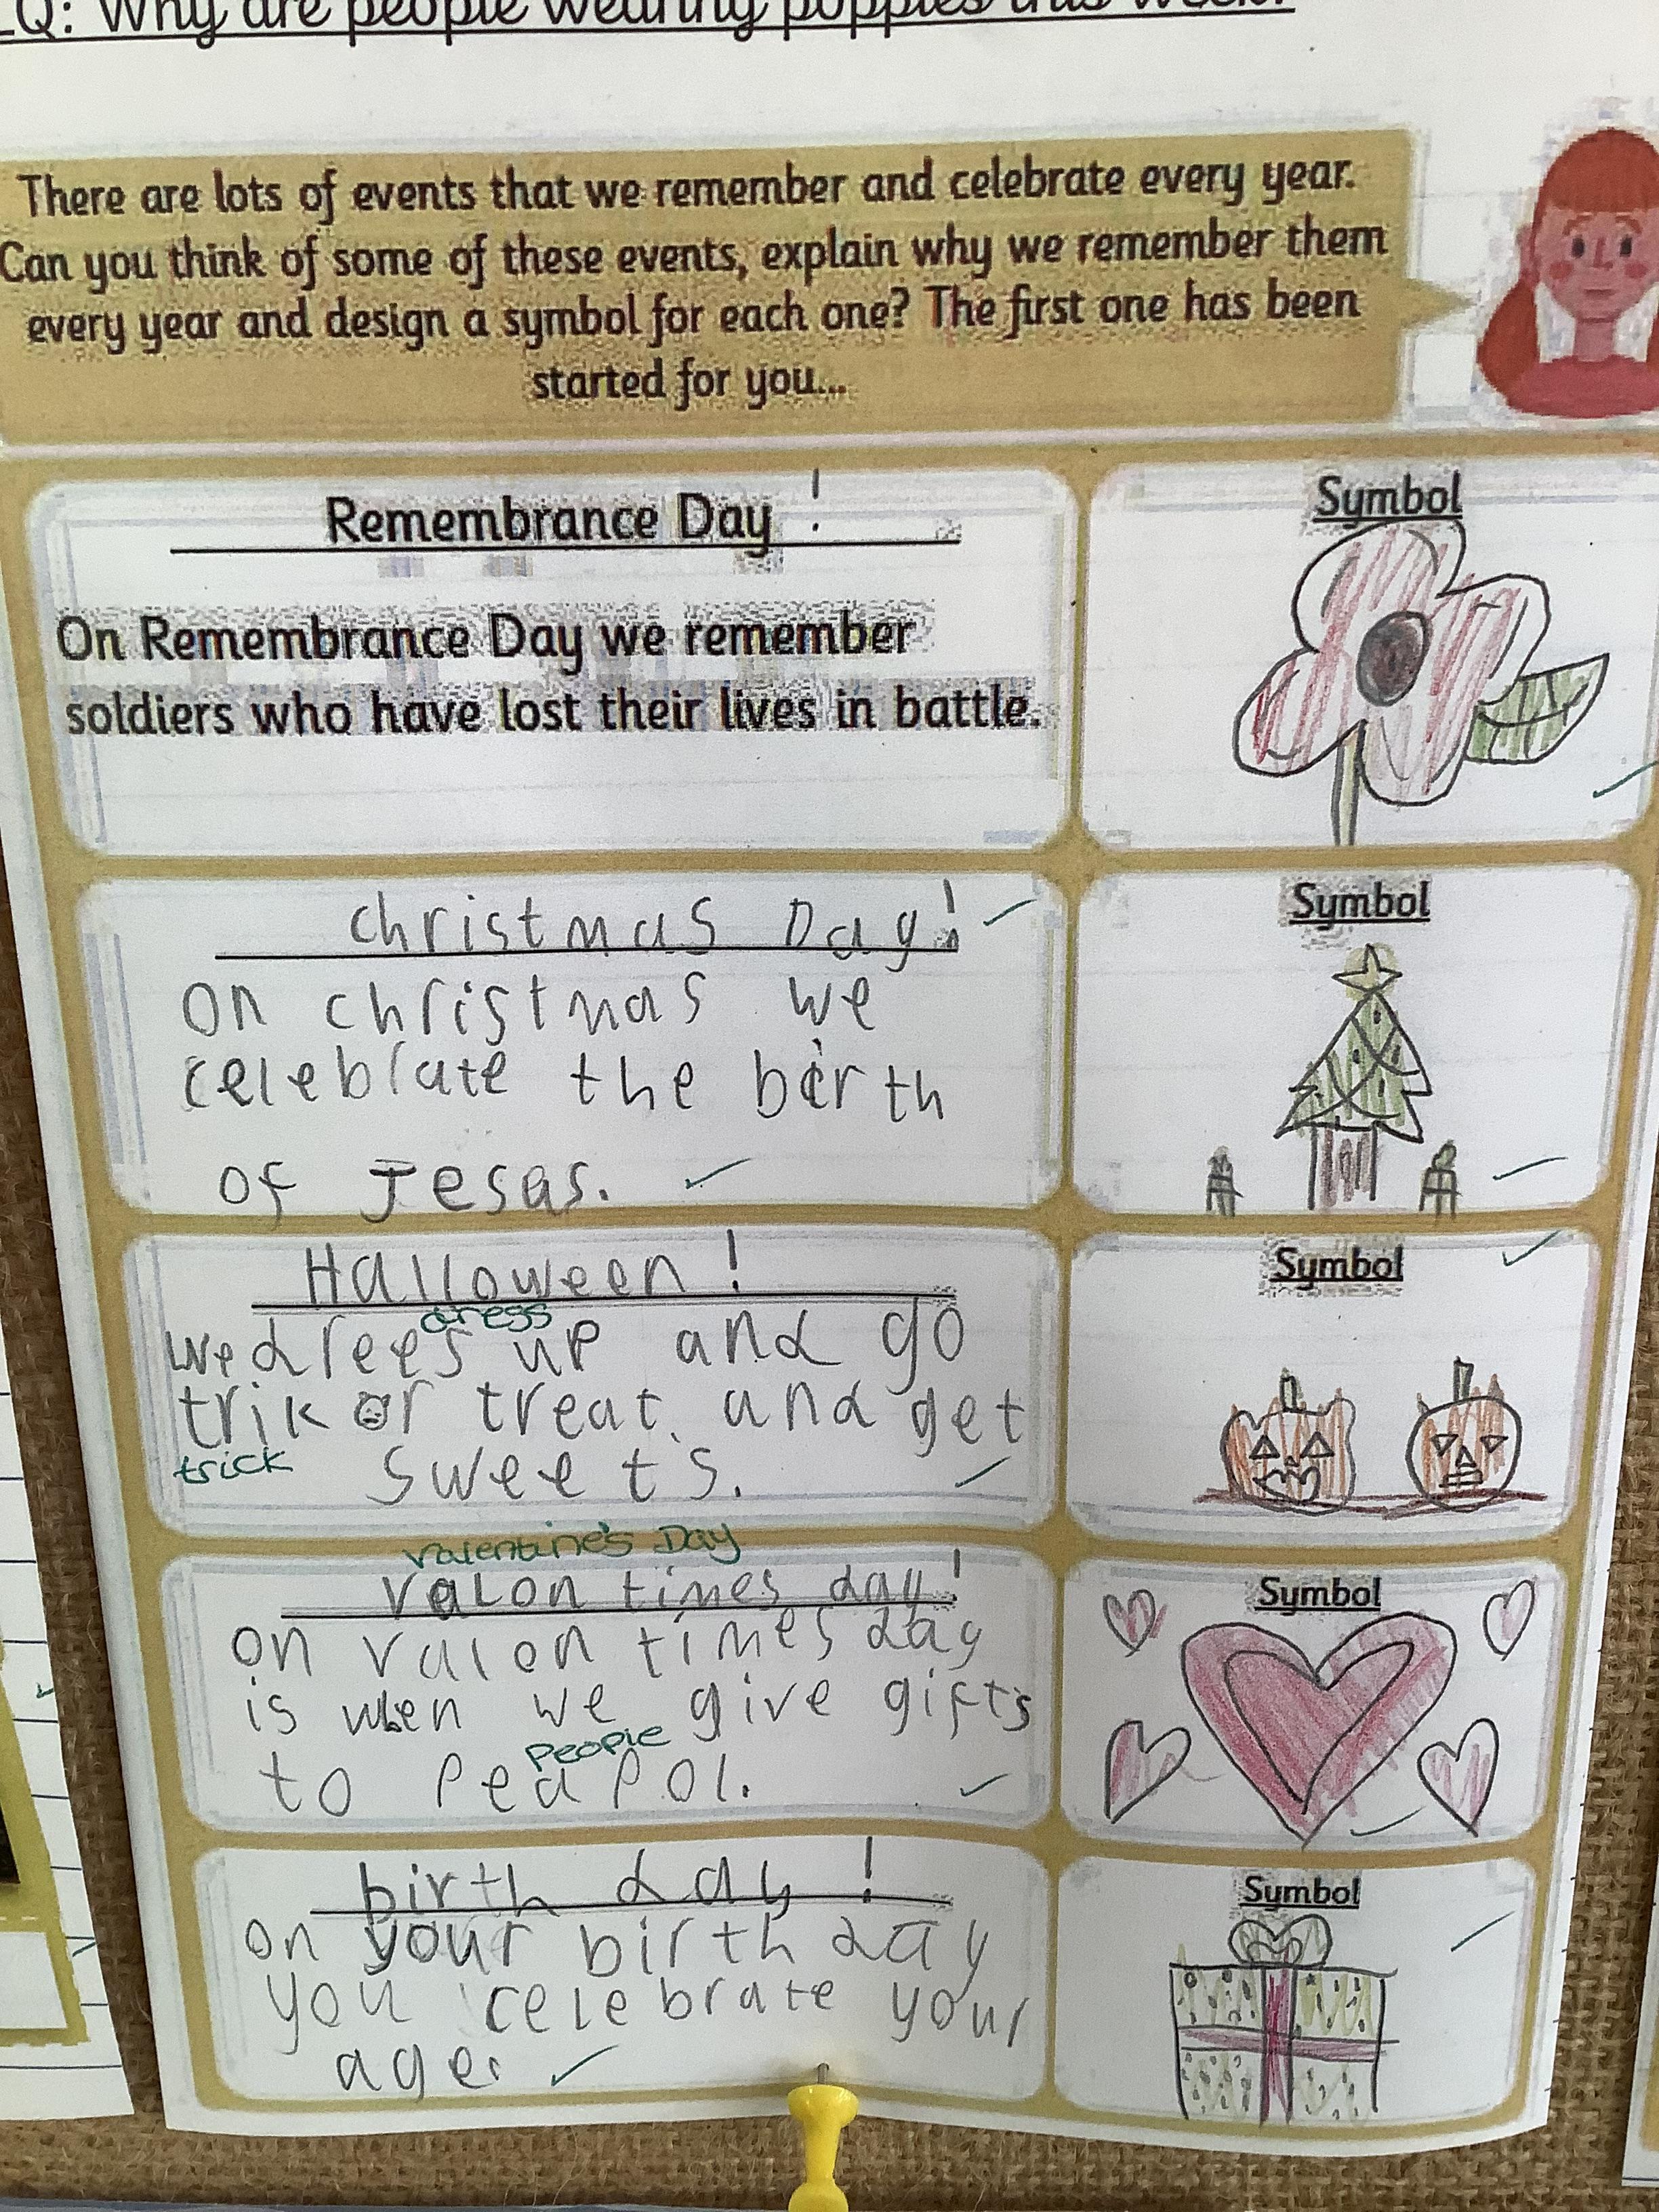 Q: Why are people wearing poppies this week?
There are lots of events that we remember and celebrate every year.
Can you think of some of these events, explain why we remember them
every year and design a symbol for each one? The first one has been
started for you...
Remembrance Day !
Symbol
On Remembrance Day we remember
soldiers who have lost their lives in battle.
christmas Day!
Symbol
On christmas we
celebrate the birth
of Jesas.
Halloween !
Symbol
dress
we drees up and go
trik or treat and get
trick
sweets.
Valentine's Day
valon times day!
Symbol
on valon times day
is when we give gifts
people
to peapol.
birth day !
Symbol
on your birth day
you celebrate your
age.